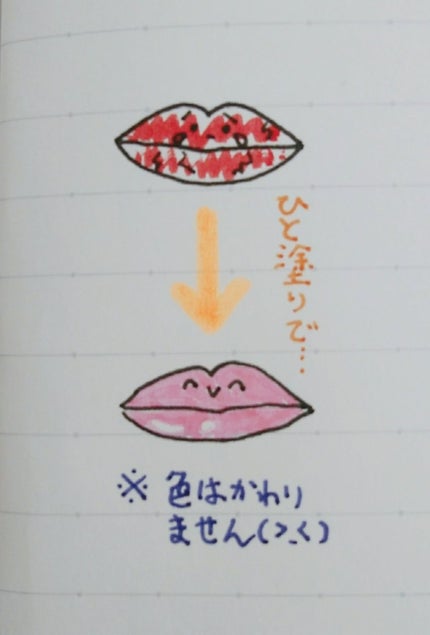 ひと塗りで…
※ 色はかわり
ません(>_<)